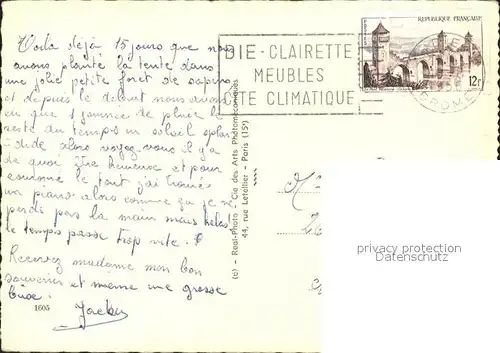 Voilà déjà 15 jours que nous
avons planté la tente dans
une jolie petite forêt de sapins
et depuis le début nous avons
eu que 1 journée de pluie le
reste du temps un soleil splen
-dide alors voyez-vous il y a
de quoi être heureuse et pour
couronné le tout j'ai trouvé
un piano alors comme ça je ne
perds pas la main mais hélas
le temps passe trop vite.
Recevez madame mon bon
souvenir et même une grosse
bise.
1605
(c) - Real-Photo - Cie des Arts Photomécaniques
44, rue Letellier - Paris (15e)
DIE - CLAIRETTE
MEUBLES
CLIMATIQUE
REPUBLIQUE FRANÇAISE
12F
DROME
privacy protection
Datenschutz